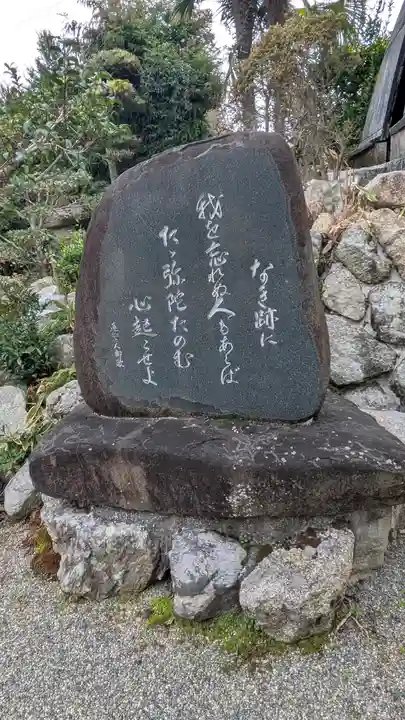 なき跡に
我を忘れぬ人もあらば
たゞ弥陀たのむ
心起こせよ